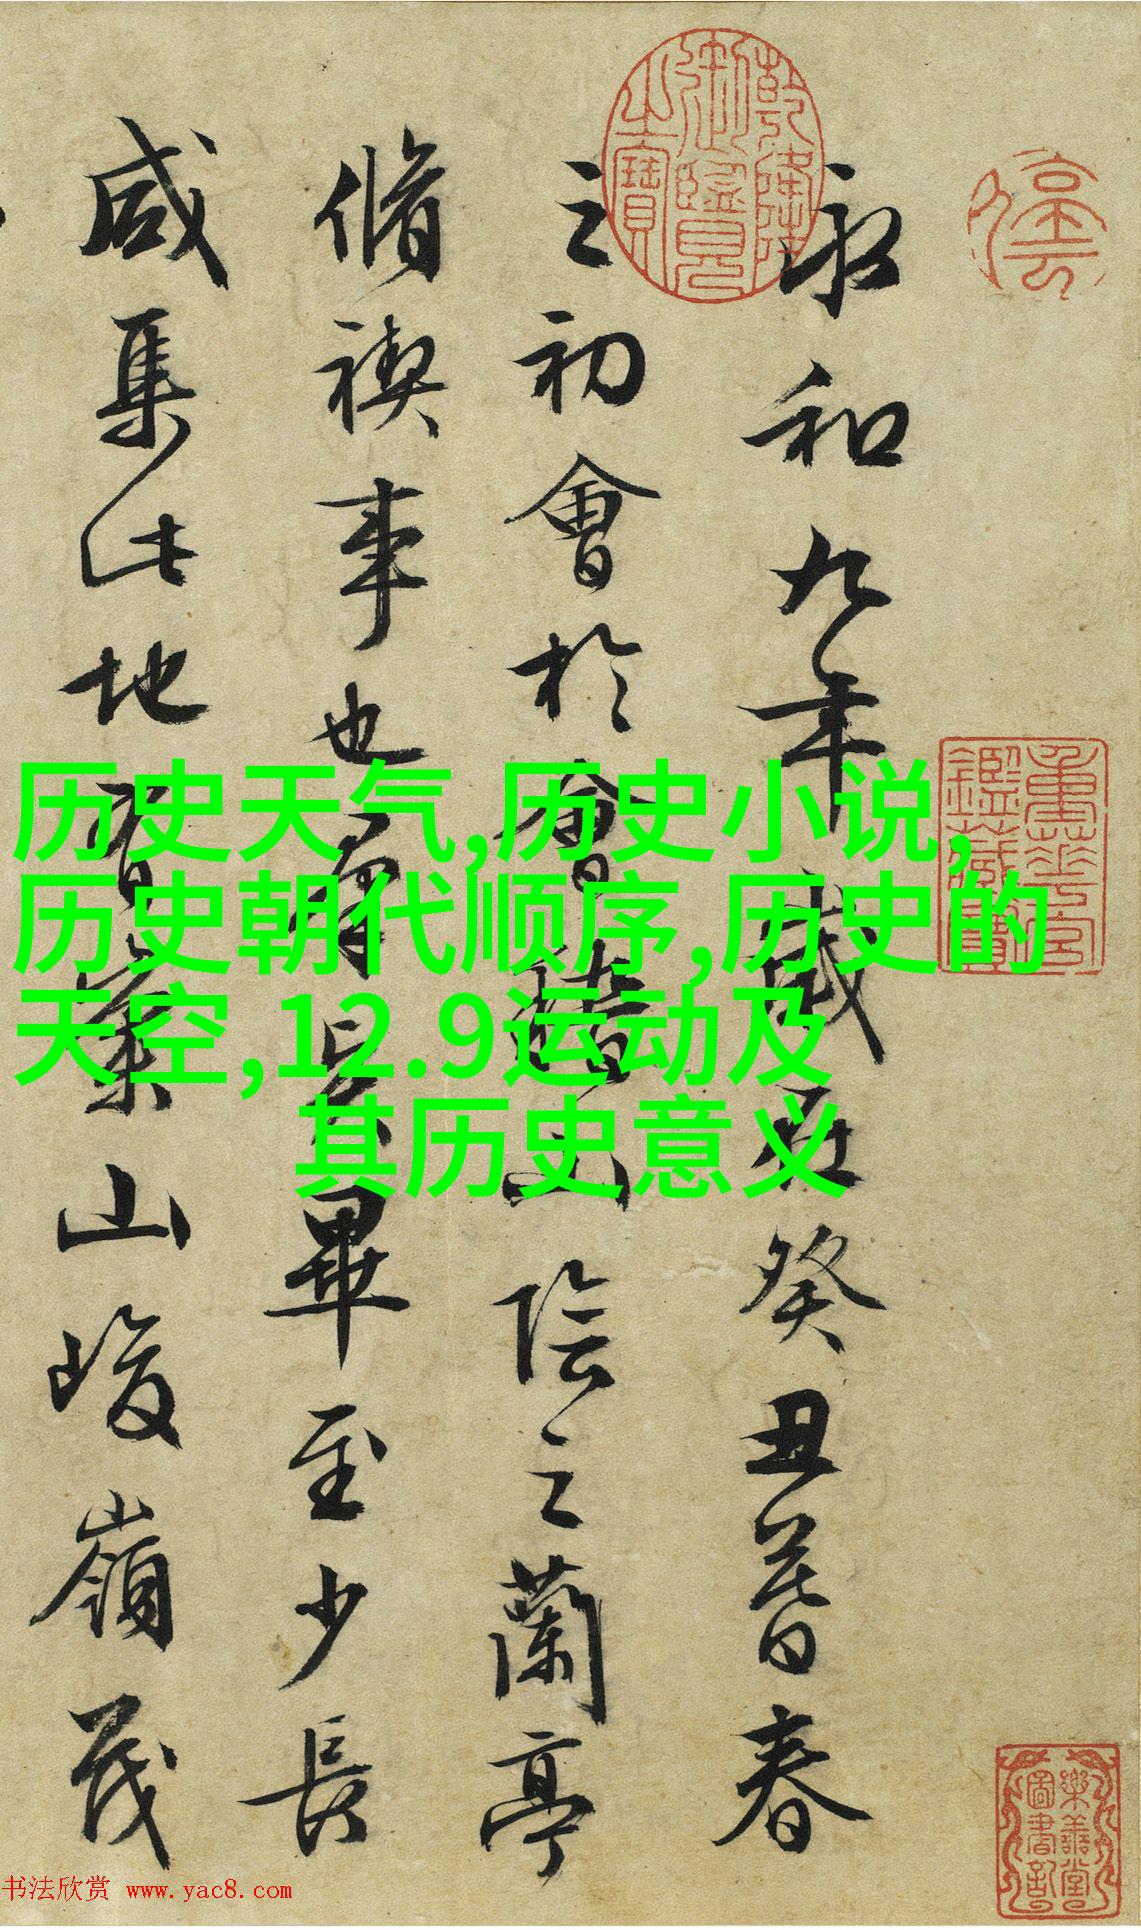 停雲
乾隆
御鑑
之寶
永和九年歲在癸丑暮春
之初會於會稽山陰之蘭亭
脩禊事也羣賢畢至少長
咸集此地有崇山峻嶺茂
重華宮
鑑藏寶
历史天气,历史小说,
历史朝代顺序,历史的
天空,12.9运动及
其历史意义
樂善堂
圖書記
书法欣赏 www.yac8.com